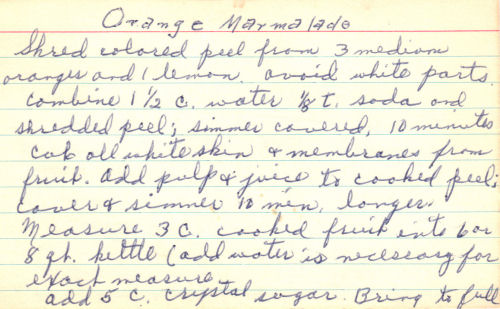 Orange Marmalade
Shred colored peel from 3 medium
oranges and 1 lemon. avoid white parts.
Combine 1 1/2 c. water 1/8 t. soda and
shredded peel; simmer covered, 10 minutes
Cut off white skin & membranes from
fruit. Add pulp & juice to cooked peel;
cover & simmer 10 min. longer.
Measure 3 C. cooked fruit into 6 or
8 qt. kettle (add water is necessary for
exact measure
add 5 C. crystal sugar. Bring to full